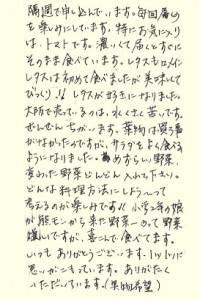 隔週で申し込んでいます。毎回届くの
を楽しみにしています。特にお気に入り
は、トマトです。濃くて届くとすぐに
そのまま食べています。レタスもロメイン
レタスは初めて食べましたが美味しくて
びっくり!!レタスが好きになりました。
大阪で売っているのは、水くさく苦いです。
ぜんぜんちがいます。葉物は買う事
がなかったのですが、サラダをよく食べる
ようになりました。めずらしい野菜、
変わった野菜どんどん入れて下さい。
どんな料理方法にしようーって
考えるのが楽しみです!!小学2年の娘
が熊モンから来た野菜ーめって野菜
嫌いですが、喜こんで食べてます。
いつもありがとうございます。1つ1つに
思いがこもっています。ありがたく
いただいています。(果物希望)